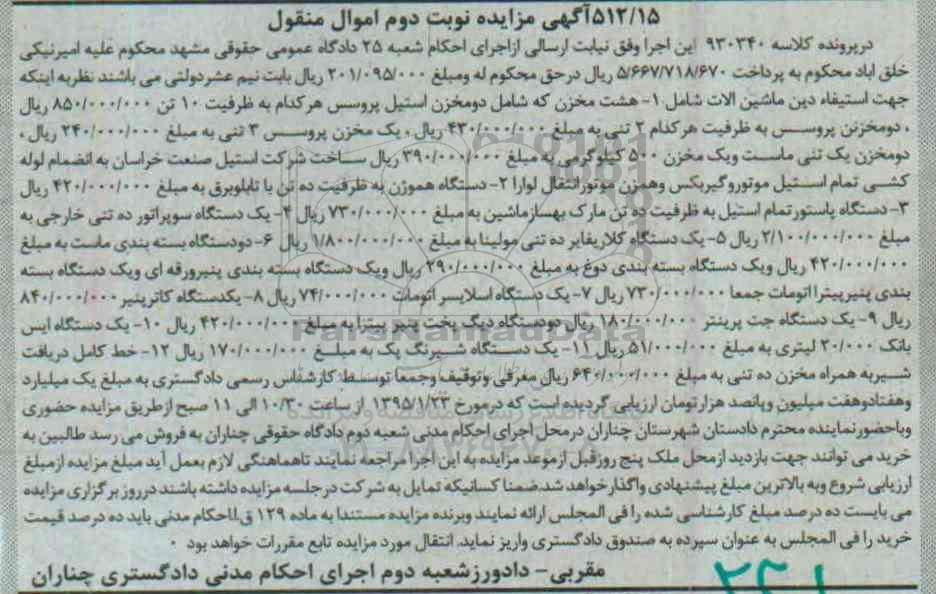 ۵۱۲/۱۵آگهی مزایده نوبت دوم اموال منقول
درپرونده کلاسه ۹۳۰۳۴۰ این اجرا وفق نیابت ارسالی ازاجرای احکام شعبه ۲۵ دادگاه عمومی حقوقی مشهد محکوم علیه امیرنیکی
خلق اباد محکوم به پرداخت ۵/۶۶۷/۷۱۸/۶۷۰ ریال درحق محکوم له ومبلغ ۲۰۱/۰۹۵/۰۰۰ ریال بابت نیم عشردولتی می باشند نظربه اینکه
جهت استیفاء دین ماشین الات شامل ۱- هشت مخزن که شامل دومخزن استیل پروسس هرکدام به ظرفیت ۱۰ تن ۸۵۰/۰۰۰/۰۰۰ ریال
، دومخزنن پروسس به ظرفیت هرکدام ۲ تنی به مبلغ ۴۳۰/۰۰۰/۰۰۰ ریال ، یک مخزن پروسس ۳ تنی به مبلغ ۲۴۰/۰۰۰/۰۰۰ ریال ،
دومخزن یک تنی ماست ویک مخزن ۵۰۰ کیلوگرمی به مبلغ ۳۹۰/۰۰۰/۰۰۰ ریال ساخت شرکت استیل صنعت خراسان به انضمام لوله
کشی تمام استیل موتوروگیربکس وهمزن موتورانتقال لوارا ۲- دستگاه هموژن به ظرفیت ده تن با تابلوبرق به مبلغ ۴۲۰/۰۰۰/۰۰۰ ریال
۳- دستگاه پاستورتمام استیل به ظرفیت ده تن مارک بهسازماشین به مبلغ ۷۳۰/۰۰۰/۰۰۰ ریال ۴- یک دستگاه سوپراتور ده تنی خارجی به
مبلغ ۲/۱۰۰/۰۰۰/۰۰۰ ریال ۵- یک دستگاه کلاریفایر ده تنی مولینا به مبلغ ۱/۸۰۰/۰۰۰/۰۰۰ ریال ۶- دودستگاه بسته بندی ماست به مبلغ
۴۲۰/۰۰۰/۰۰۰ ریال ویک دستگاه بسته بندی دوغ به مبلغ ۲۹۰/۰۰۰/۰۰۰ ریال ویک دستگاه بسته بندی پنیرورقه ای ویک دستگاه بسته
بندی پنیرپیتزا اتومات جمعا ۷۳۰/۰۰۰/۰۰۰ ریال ۷- یک دستگاه اسلایسر اتومات ۷۴/۰۰۰/۰۰۰ ریال ۸- یکدستگاه کاترپنیر ۸۴۰/۰۰۰/۰۰۰
ریال ۹- یک دستگاه جت پرینتر ۱۸۰/۰۰۰/۰۰۰ ریال دودستگاه دیگ پخت پنیر پیتزا به مبلغ ۴۲۰/۰۰۰/۰۰۰ ریال ۱۰- یک دستگاه ایس
بانک ۲۰/۰۰۰ لیتری به مبلغ ۵۱/۰۰۰/۰۰۰ ریال ۱۱- یک دستگاه شیرنگ پک به مبلغ ۱۷۰/۰۰۰/۰۰۰ ریال ۱۲- خط کامل دریافت
شیربه همراه مخزن ده تنی به مبلغ ۶۴۰/۰۰۰/۰۰۰ ریال معرفی وتوقیف وجمعا توسط کارشناس رسمی دادگستری به مبلغ یک میلیارد
وهفتادوهفت میلیون وپانصد هزارتومان ارزیابی گردیده است که درمورخ ۱۳۹۵/۱/۲۳ از ساعت ۱۰/۳۰ الی ۱۱ صبح ازطریق مزایده حضوری
وباحضورنماینده محترم دادستان شهرستان چناران درمحل اجرای احکام مدنی شعبه دوم دادگاه حقوقی چناران به فروش می رسد طالبین به
خرید می توانند جهت بازدید ازمحل ملک پنج روزقبل ازموعد مزایده به این اجرا مراجعه نمایند تاهماهنگی لازم بعمل آید مبلغ مزایده ازمبلغ
ارزیابی شروع وبه بالاترین مبلغ پیشنهادی واگذارخواهد شد.ضمنا کسانیکه تمایل به شرکت درجلسه مزایده داشته باشند درروز برگزاری مزایده
می بایست ده درصد مبلغ کارشناسی شده را فی المجلس ارائه نمایند وبرنده مزایده مستندا به ماده ۱۲۹ ق.ااحکام مدنی باید ده درصد قیمت
خرید را فی المجلس به عنوان سپرده به صندوق دادگستری واریز نماید. انتقال مورد مزایده تابع مقررات خواهد بود ۰
مقربی- دادورزشعبه دوم اجرای احکام مدنی دادگستری چناران
ParsNamadData